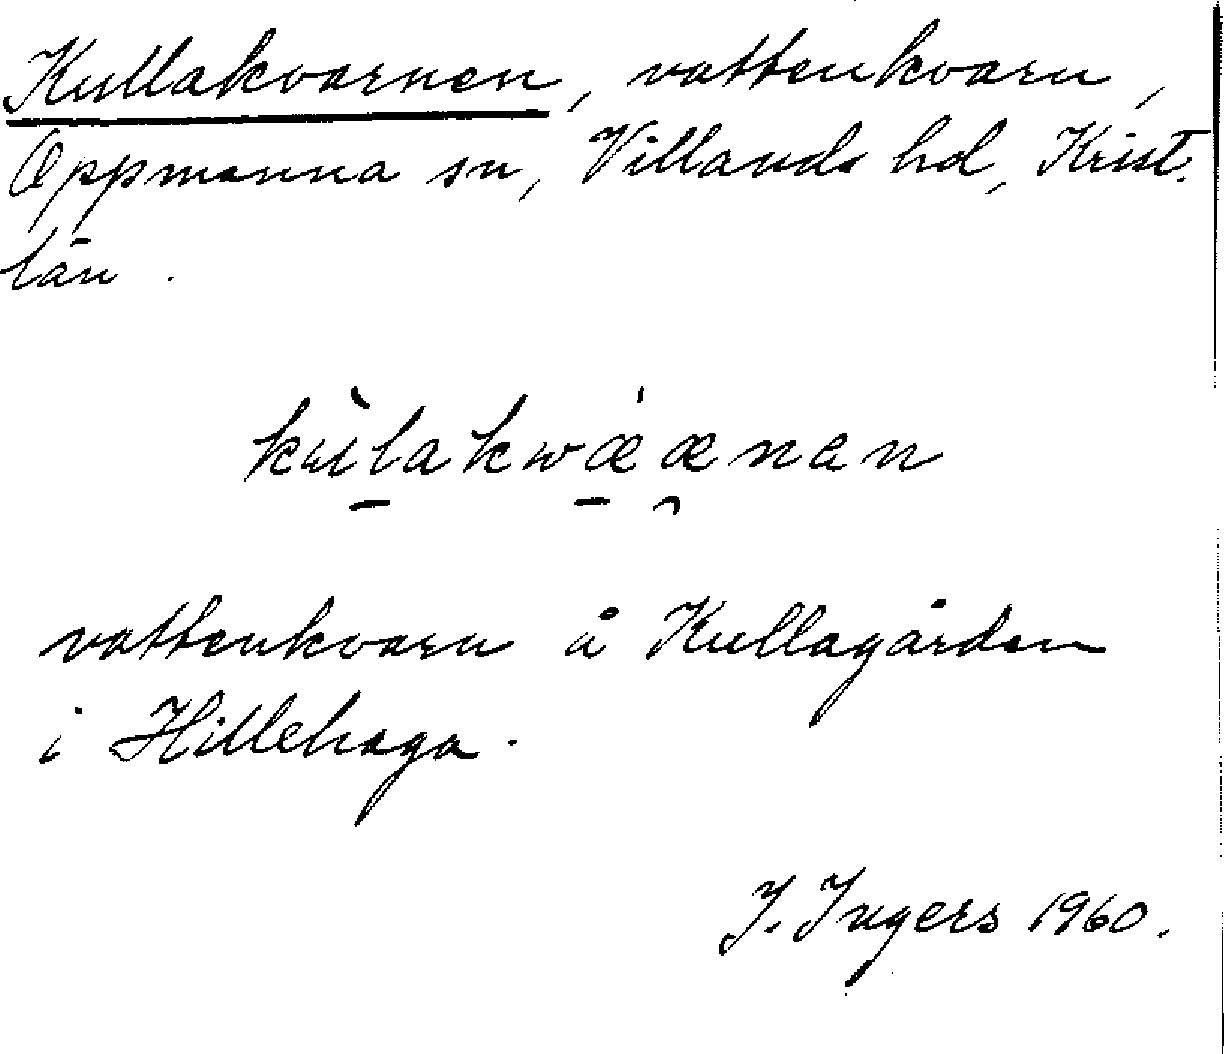 Kullakvarnen, vattenkvarn,
Oppmanna sn, Villands hd, Krist.
län.
kùlakwǽænan
vattenkvarn å Kullagården
i Hillehaga.
I. Ingers 1960.